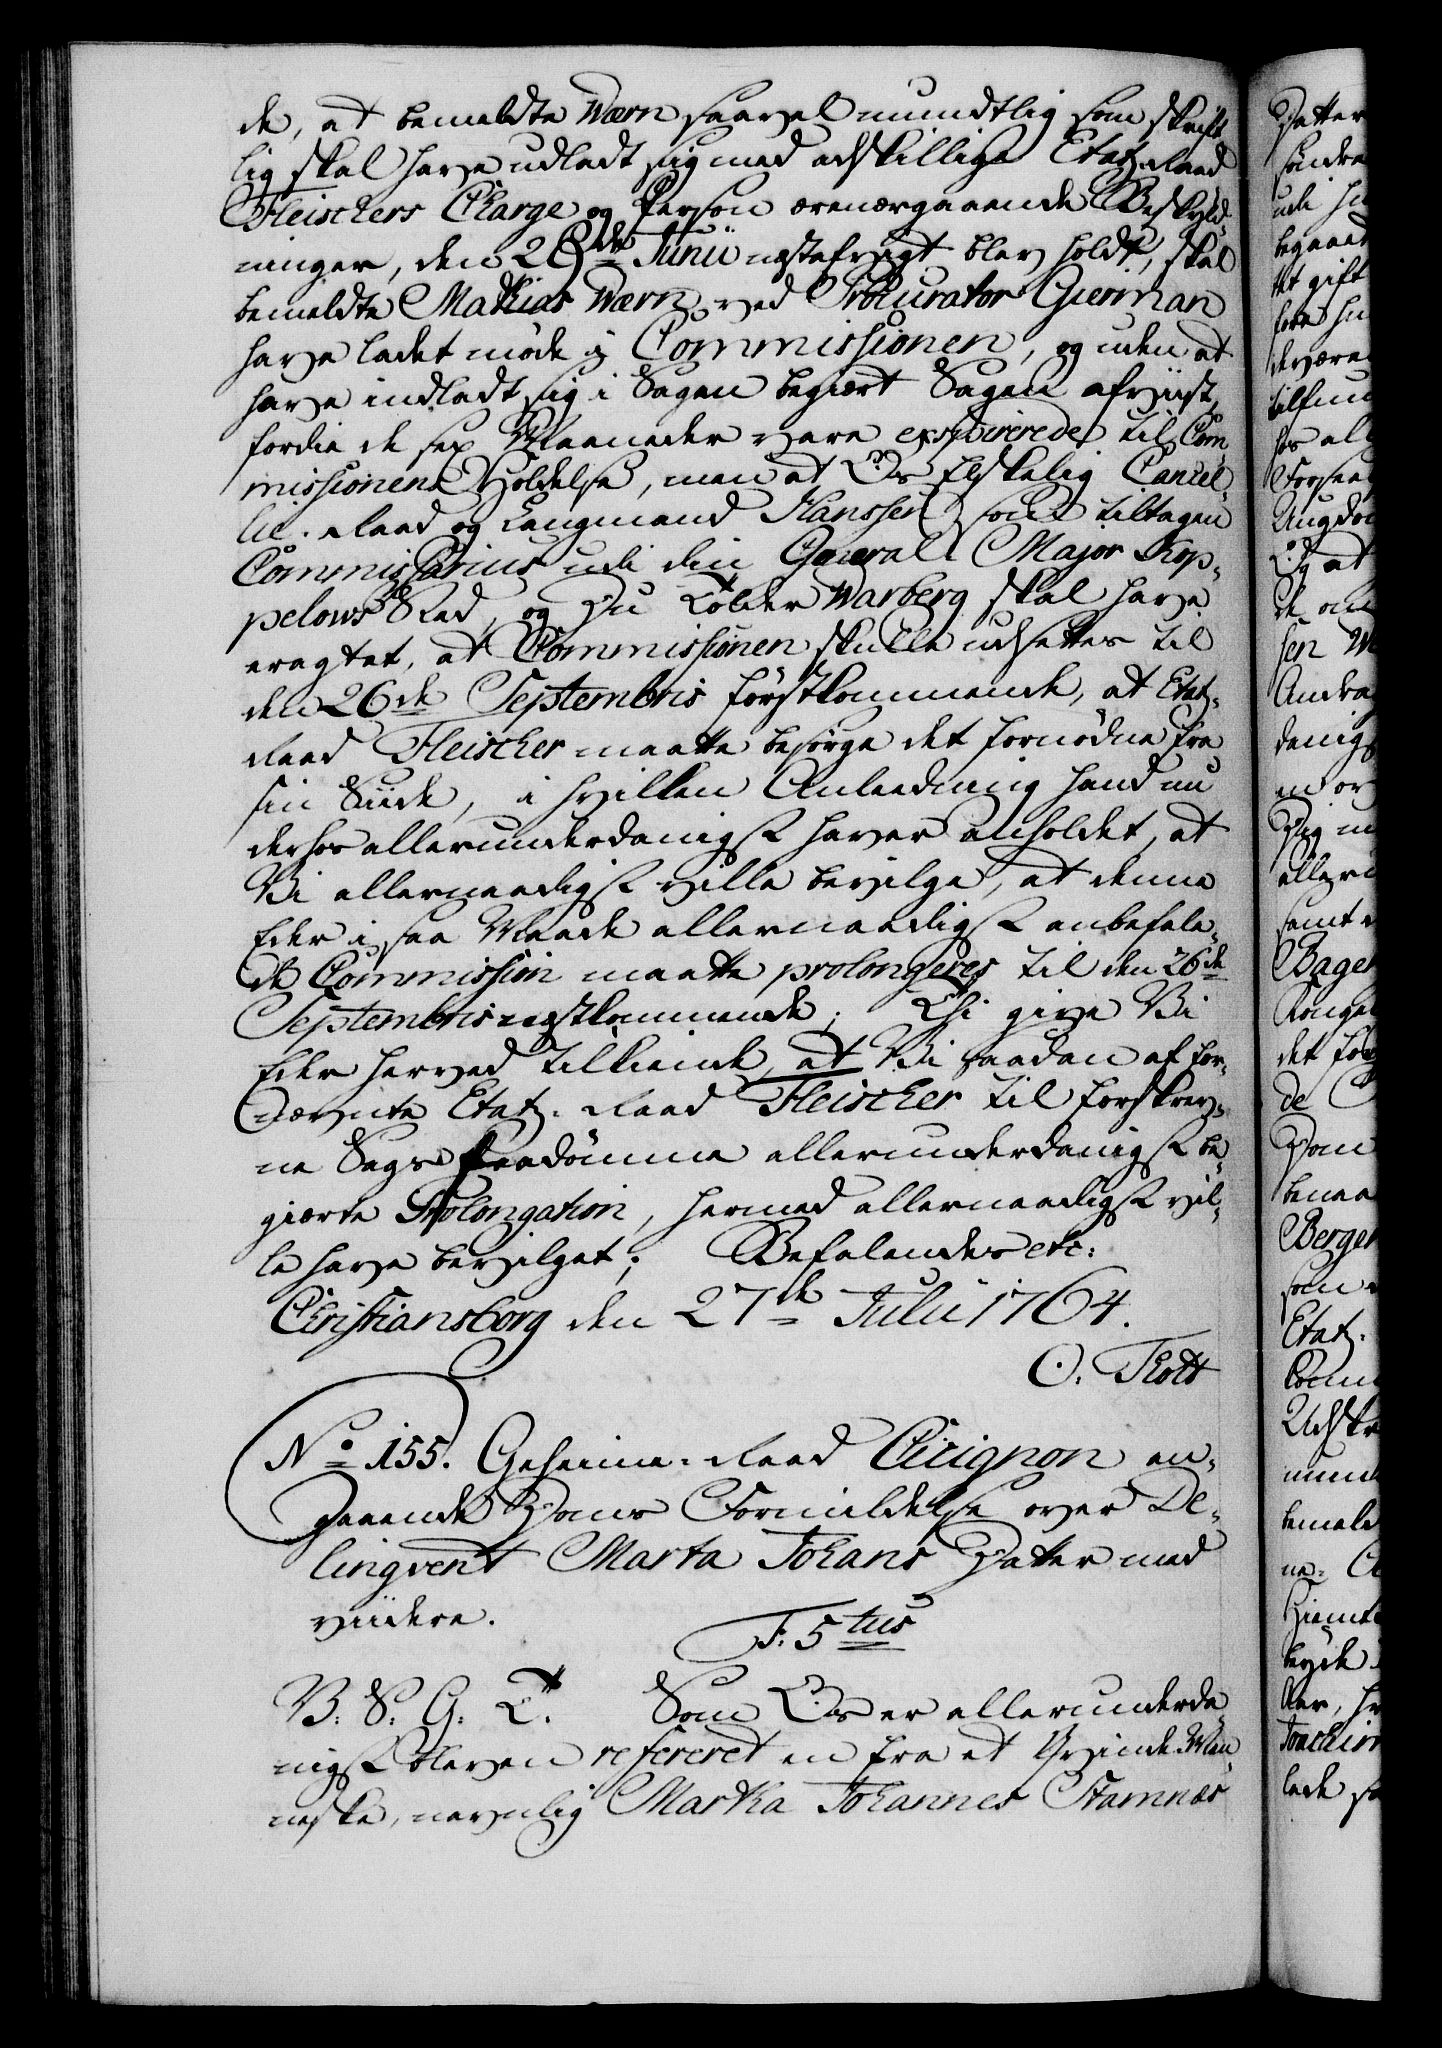 de, at bemeldte Wærn saavel mundtlig som skrift
lig skal have udladt sig med adskillige Etatz-Raad
Fleischers Charge og Person ærenærgaaende Beskyld-
ninger, den 28de Junii næstafvigt blev holdt, skal
bemeldte Mathias Wærn ved Procurator Gierman
have ladet møde i Commissionen, og uden at
have indladt sig i Sagen begiært Sagen afviist,
fordie de sex Maaneder vare exspirerede til Com-
missionens Holdelse, men at Os Elskelig Cancel-
lie-Raad og Laugmand Hanssen som tiltagen
Commissarius udi din General Major Kop-
pelows Sted, og Du Tolder Warberg skal have
eragtet, at Commissionen skulle udsættes til
den 26de Septembris førstkommende, at Etatz-
Raad Fleischer maatte besørge det fornødne fra
sin Siide, i hvilken Anleedning hand nu
derhos allerunderdanigst haver anholdet, at
Vi allernaadigst ville bevilge, at denne
Eder i saa Maade allernaadigst anbefale-
de Commission maatte prolongeres til den 26de
Septembris næstkommende; Thi give Vi
Eder herved tilkiende, at Vi saadan af for-
nævnte Etatz-Raad Fleischer til forskrev-
ne Sags Paadømme allerunderdanigst be-
giærte Prolongation, hermed allernaadigst vil-
le have bevilget; Befalendes etc:
Christiansborg den 27de Julii 1764.
O. Thott
No 155. Geheime-Raad Cicignon an-
gaaende Doms Formildelse over De-
lingvent Marta Johans Datter med
viidere.
F: 5tus
V: S: G: T. Som Os er allerunderda-
nigst bleven refereret en fra et Qvinde Men-
neske, navnlig Martha Johannes Stamnæs